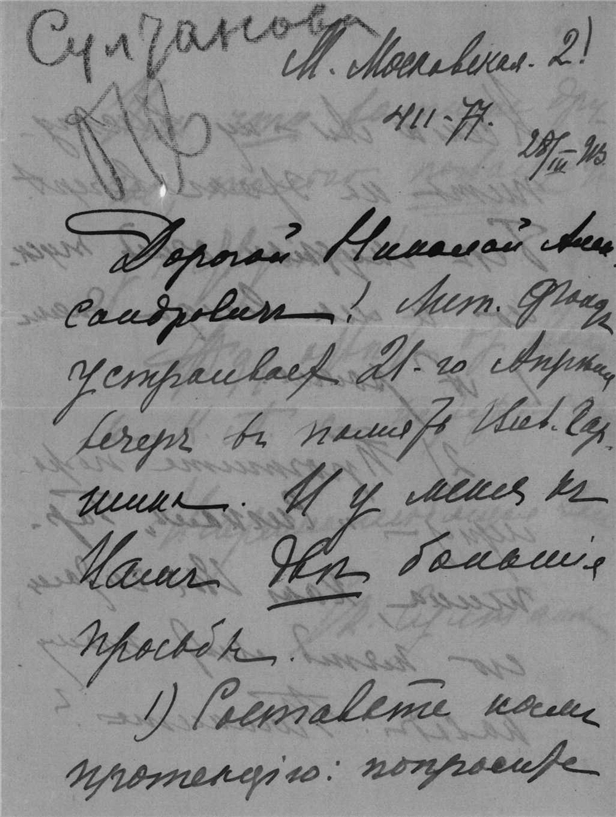 Султанова
М. Московская. 2!
411-77.
28/III 913.
Дорогой Николай Алек
сандровичъ! Лит. Фондъ
устраиваетъ 21-го Апрѣля
вечеръ въ память Всев. Гар-
шина. И у меня къ
Вамъ двѣ большія
просьбы.
1) Составьте намъ
протекцію: попросите